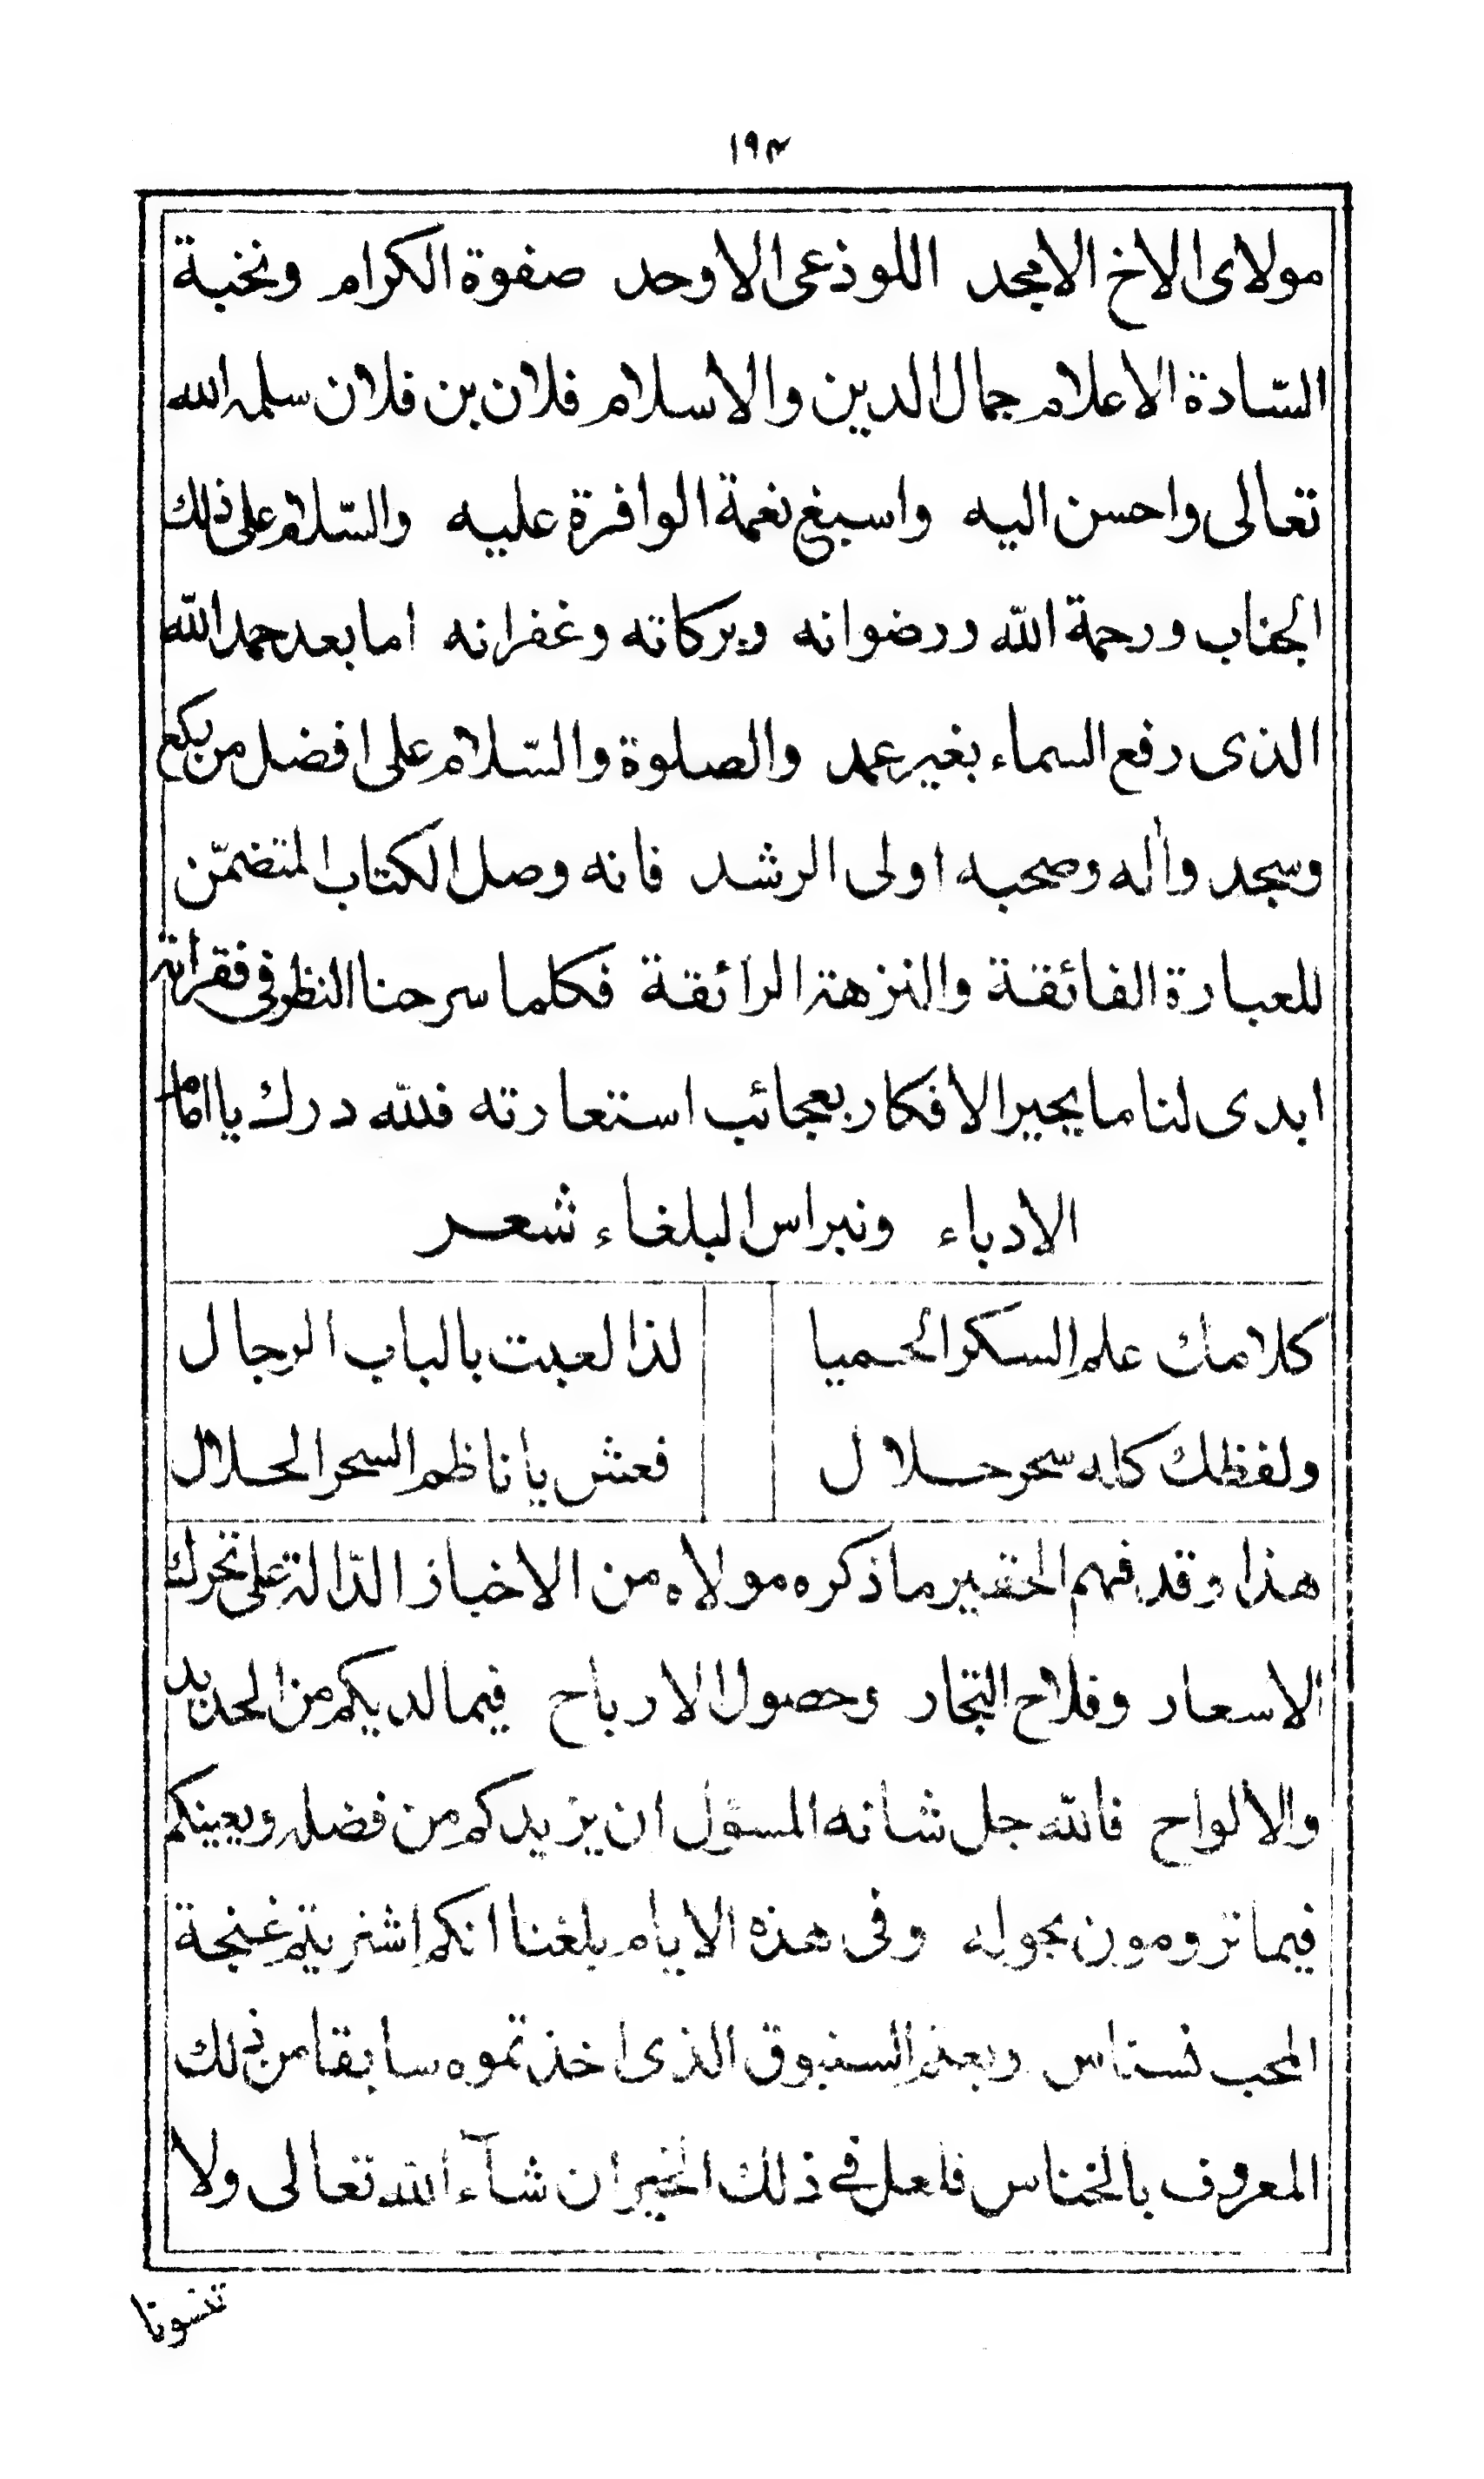 ١٩٣
مولاى الاخ الامجد اللوذعى الاوحد صفوة الكرام ونخبة
السّادة الاعلام جمال الدين والاسلام فلان بن فلان سلمه الله
تعالى واحسن اليه واسبغ نعمة الوافرة عليه والسّلام على ذلك
الجناب ورحمة اللّه ورضوانه وبركاته وغفرانه اما بعد حمد اللّه
الذى رفع السماء بغير عمد والصلوة والسّلام على افضل من ركع
وسجد وأله وصحبه اولى الرشد فانه وصل الكتاب المتضمّن
للعبارة الفائقة والنزهة الرائقة فكلما سرحنا النظر فى فقراته
ابدى لنا ما يحير الافكار بعجائب استعارته فللّه درك يا امام
الادباء ونبراس البلغاء شعر
كلامك علم السكر الحميا لذا لعبت بالباب الرجال
ولفظك كله سحر حلال فعش يا ناظم السحر الحلال
هذا وقد فهم الحقير ما ذكره مولاه من الاخبار الدّالة على تحرك
الاسعار وفلاح التجار وحصول الارباح فيما لديكم من الحديد
والالواح فاللّه جل شانه المسؤل ان يزيدكم من فضله ويعينكم
فيما ترومون بحوله وفى هذه الايام بلغنا انكم اشتريتم غنجة
المحب نسناس وبعتم السنبوق الذى اخذتموه سابقا من ذلك
المعروف بالخناس فلعل فى ذلك الخير ان شآء الله تعالى ولا
تنسونا